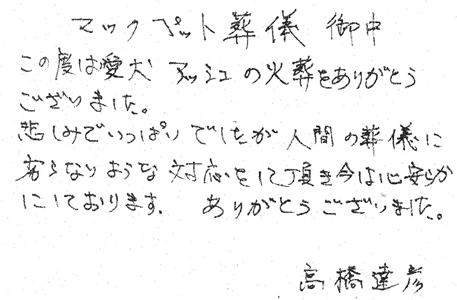 マックペット葬儀 御中
この度は愛犬 アッシュの火葬をありがとう
ございました。
悲しみでいっぱいでしたが人間の葬儀に
劣らないような対応をして頂き今は心安らか
にしております。 ありがとうございました。
高橋達彦